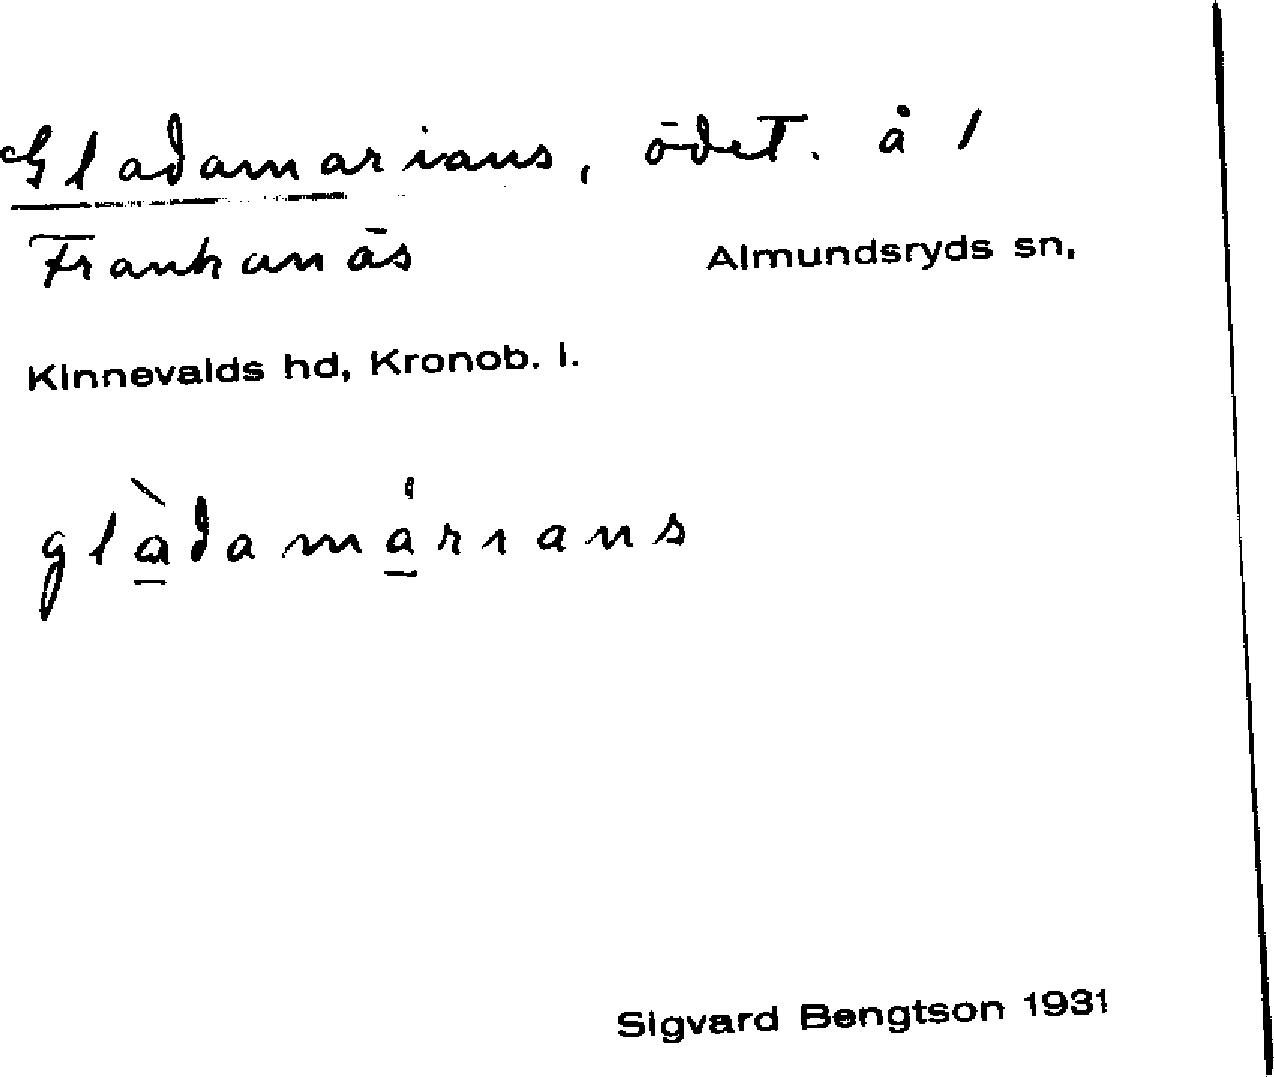 Gladamarians, ödet. å 1
Frankanäs Almundsryds sn,
Kinnevalds hd, Kronob. l.
glàdamárıans
Sigvard Bengtson 1931